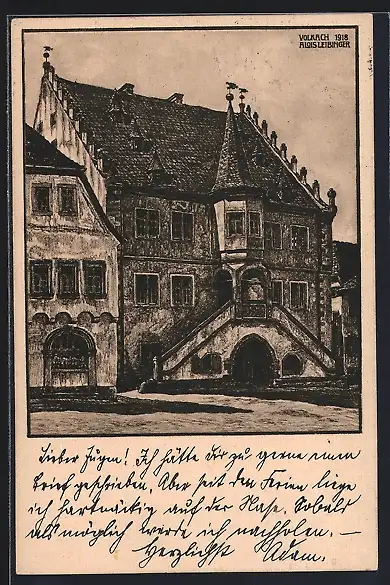 VOLKACH 1918
ALOIS LEIBINGER
Lieber Jürgen! Ich hätte Dir zu gerne einen
Brief geschrieben. Aber seit den Ferien liege
ich hartnäckig auf der Nase. Sobald
als möglich werde ich nachholen. —
Herzlichst Adam.